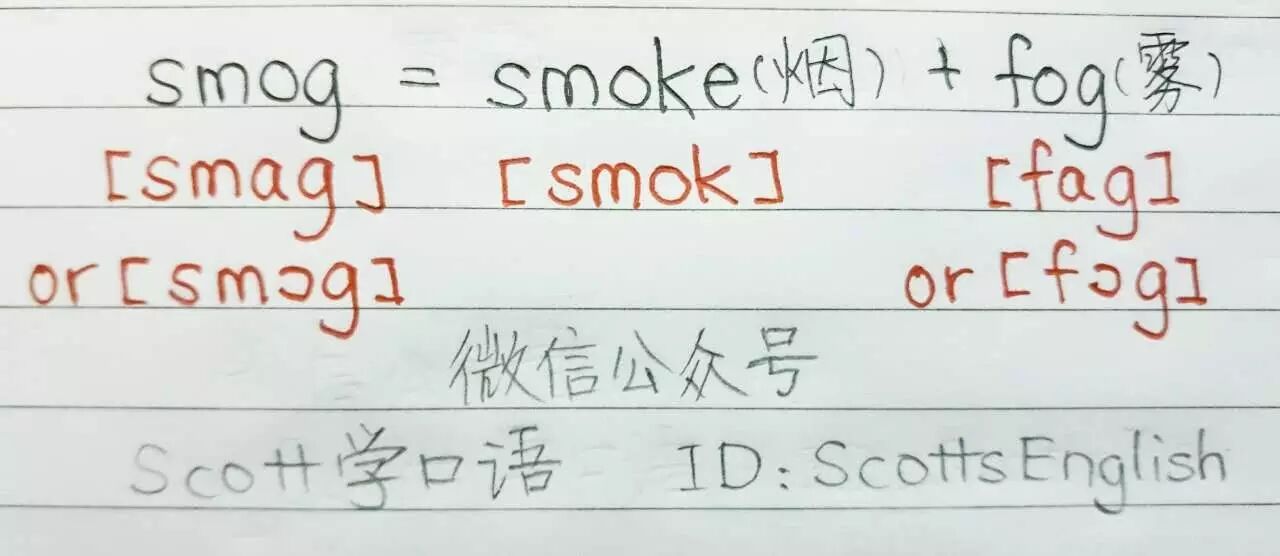 smog = smoke(烟) + fog(雾)
[smag] [smok] [fag]
or [smɔg] or [fɔg]
微信公众号
Scott学口语 ID: ScottsEnglish